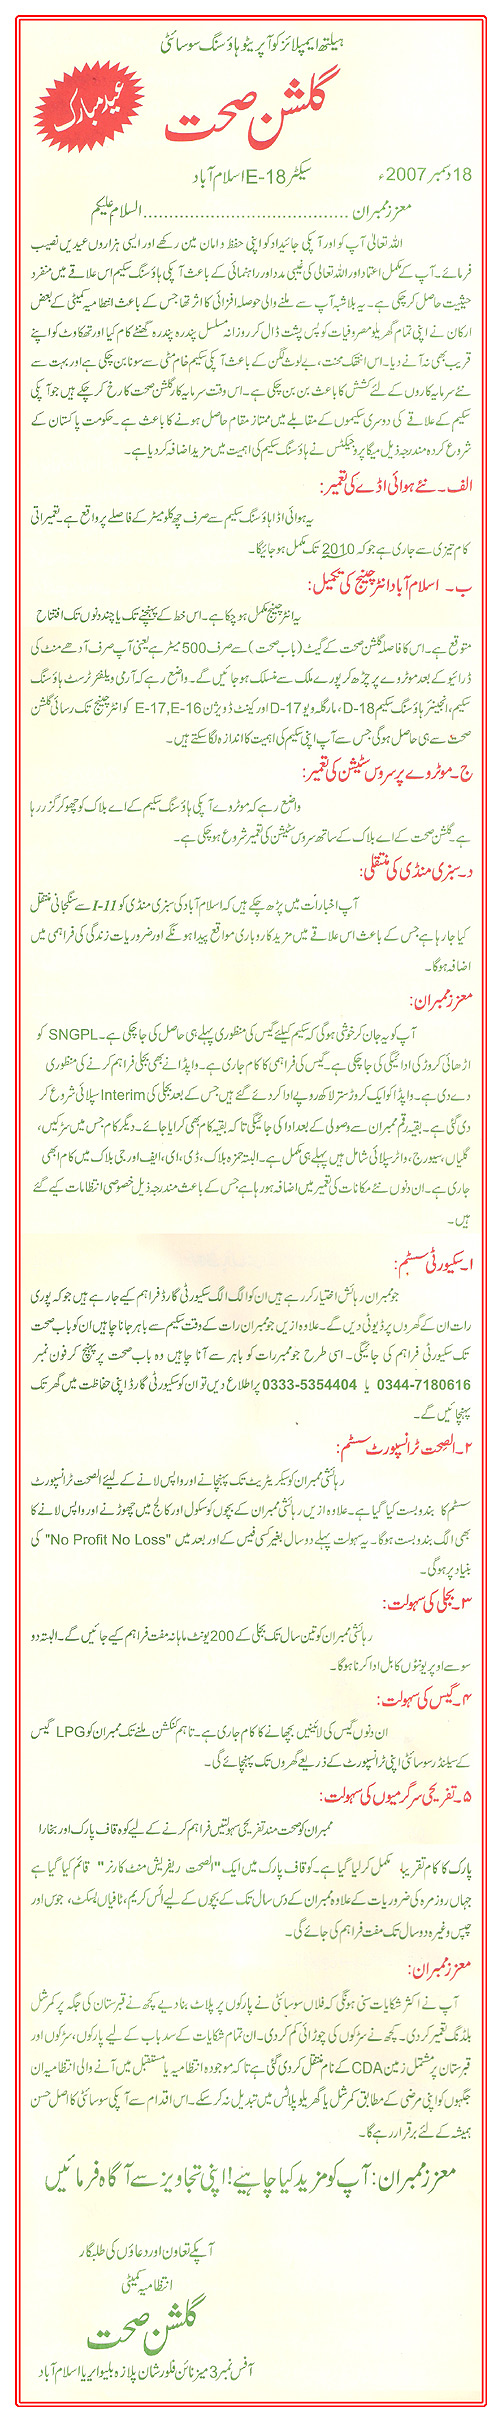 ہیلتھ ایمپلائز کوآپریٹو ہاؤسنگ سوسائٹی
عید مبارک
گلشن صحت
18 دسمبر 2007ء
سیکٹر E-18 اسلام آباد
معزز ممبران ........................................ السلام علیکم
اللہ تعالیٰ آپ کو اور آپکی جائیداد کو اپنی حفظ و امان مین رکھے اور ایسی ہزاروں عیدیں نصیب
فرمائے۔ آپ کے مکمل اعتماد اور اللہ تعالی کی غیبی مدد اور راہنمائی کے باعث آپکی ہاؤسنگ سکیم اس علاقے میں منفرد
حیثیت حاصل کر چکی ہے۔ یہ بلاشبہ آپ سے ملنے والی حوصلہ افزائی کا اثر تھا جس کے باعث انتظامیہ کمیٹی کے بعض
ارکان نے اپنی تمام گھریلو مصروفیات کو پس پشت ڈال کر روزانہ مسلسل پندرہ پندرہ گھنٹے کام کیا اور تھکاوٹ کو اپنے
قریب بھی نہ آنے دیا۔ اس انتھک محنت، بے لوث لگن کے باعث آپکی سکیم خام مٹی سے سونا بن چکی ہے اور بہت سے
نئے سرمایہ کاروں کے لئے کشش کا باعث بن بن چکی ہے۔ اس وقت سرمایہ کار گلشن صحت کا رخ کر چکے ہیں جو آپکی
سکیم کے علاقے کی دوسری سکیموں کے مقابلے میں ممتاز مقام حاصل ہونے کا باعث ہے۔ حکومت پاکستان کے
شروع کردہ مندرجہ ذیل میگا پروجیکٹس نے ہاؤسنگ سکیم کی اہمیت میں مزید اضافہ کر دیا ہے۔
الف۔ نئے ہوائی اڈے کی تعمیر:
یہ ہوائی اڈا ہاؤسنگ سکیم سے صرف چھ کلومیٹر کے فاصلے پر واقع ہے۔ تعمیراتی
کام تیزی سے جاری ہے جو کہ 2010 تک مکمل ہو جائیگا۔
ب۔ اسلام آباد انٹر چینج کی تکمیل:
یہ انٹر چینج مکمل ہو چکا ہے۔ اس خط کے پہنچنے تک یا چند دنوں تک افتتاح
متوقع ہے۔ اس کا فاصلہ گلشن صحت کے گیٹ (باب صحت) سے صرف 500 میٹر ہے یعنی آپ صرف آدھے منٹ کی
ڈرائیو کے بعد موٹروے پر چڑھ کر پورے ملک سے منسلک ہو جائیں گے۔ واضح رہے کہ آرمی ویلفئر ٹرسٹ ہاؤسنگ
سکیم، انجینئر ہاؤسنگ سکیم D-18، مارگلہ ویو D-17 اور کینٹ ڈویژن E-17,E-16 کو انٹر چینج تک رسائی گلشن
صحت سے ہی حاصل ہو گی جس سے آپ اپنی سکیم کی اہمیت کا اندازہ لگا سکتے ہیں۔
ج۔ موٹروے پر سروس سٹیشن کی تعمیر:
واضح رہے کہ موٹروے آپکی ہاؤسنگ سکیم کے اے بلاک کو چھو کر گزر رہا
ہے۔ گلشن صحت کے اے بلاک کے ساتھ سروس سٹیشن کی تعمیر شروع ہو چکی ہے۔
د۔ سبزی منڈی کی منتقلی:
آپ اخبارات میں پڑھ چکے ہیں کہ اسلام آباد کی سبزی منڈی کو I-11 سے سنگجانی منتقل
کیا جا رہا ہے جس کے باعث اس علاقے میں مزید کاروباری مواقع پیدا ہونگے اور ضروریات زندگی کی فراہمی میں
اضافہ ہوگا۔
معزز ممبران:
آپ کو یہ جان کر خوشی ہو گی کہ سکیم کیلئے گیس کی منظوری پہلے ہی حاصل کی جا چکی ہے۔ SNGPL کو
اڑھائی کروڑ کی ادائیگی کی جا چکی ہے۔ گیس کی فراہمی کا کام جاری ہے۔ واپڈا نے بھی بجلی فراہم کرنے کی منظوری
دے دی ہے۔ واپڈا کو ایک کروڑ ستر لاکھ روپے ادا کر دئے گئے ہیں جس کے بعد بجلی کی Interim سپلائی شروع کر
دی گئی ہے۔ بقیہ رقم ممبران سے وصولی کے بعد ادا کی جائیگی تاکہ بقیہ کام بھی کرایا جائے۔ دیگر کام جس میں سڑکیں،
گلیاں، سیوریج، واٹر سپلائی شامل ہیں پہلے ہی مکمل ہے۔ البتہ حمزہ بلاک، ڈی، ای، ایف اور جی بلاک میں کام ابھی
جاری ہے۔ ان دنوں نئے مکانات کی تعمیر میں اضافہ ہو رہا ہے جس کے باعث مندرجہ ذیل خصوصی انتظامات کیے گئے
ہیں۔
۱۔ سکیورٹی سسٹم:
جو ممبران رہائش اختیار کر رہے ہیں ان کو الگ الگ سکیورٹی گارڈ فراہم کیے جا رہے ہیں جو کہ پوری
رات ان کے گھروں پر ڈیوٹی دیں گے۔ علاوہ ازیں جو ممبران رات کے وقت سکیم سے باہر جانا چاہیں ان کو باب صحت
تک سکیورٹی فراہم کی جائیگی۔ اسی طرح جو ممبر رات کو باہر سے آنا چاہیں وہ باب صحت پر پہنچ کر فون نمبر
0344-7180616 یا 0333-5354404 پر اطلاع دیں تو ان کو سکیورٹی گارڈ اپنی حفاظت میں گھر تک
پہنچائیں گے۔
۲۔ الصحت ٹرانسپورٹ سسٹم:
رہائشی ممبران کو سیکریٹریٹ تک پہنچانے اور واپس لانے کے لیئے الصحت ٹرانسپورٹ
سسٹم کا بندوبست کیا گیا ہے۔ علاوہ ازیں رہائشی ممبران کے بچوں کو سکول اور کالج میں چھوڑنے اور واپس لانے کا
بھی الگ بندوبست ہوگا۔ یہ سہولت پہلے دو سال بغیر کسی فیس کے اور بعد میں "No Profit No Loss" کی
بنیاد پر ہو گی۔
۳۔ بجلی کی سہولت:
رہائشی ممبران کو تین سال تک بجلی کے 200 یونٹ ماہانہ مفت فراہم کیے جائیں گے۔ البتہ دو
سو سے اوپر یونٹوں کا بل ادا کرنا ہوگا۔
۴۔ گیس کی سہولت:
ان دنوں گیس کی لائینیں بچھانے کا کام جاری ہے۔ تاہم کنکشن ملنے تک ممبران کو LPG گیس
کے سیلنڈر سوسائٹی اپنی ٹرانسپورٹ کے ذریعے گھروں تک پہنچائے گی۔
۵۔ تفریحی سرگرمیوں کی سہولت:
ممبران کو صحت مند تفریحی سہولتیں فراہم کرنے کے لیے کوہ قاف پارک اور بخارا
پارک کا کام تقریباً مکمل کر لیا گیا ہے۔ کوہ قاف پارک میں ایک "الصحت ریفریشمنٹ کارنر" قائم کیا گیا ہے
جہاں روزمرہ کی ضروریات کے علاوہ ممبران کے دس سال تک کے بچوں کے لیے آئس کریم، ٹافیاں بسکٹ، جوس اور
چپس وغیرہ دو سال تک مفت فراہم کی جائے گی۔
معزز ممبران:
آپ نے اکثر شکایات سنی ہونگی کہ فلاں سوسائٹی نے پارکوں پر پلاٹ بنا دیے کچھ نے قبرستان کی جگہ پر کمرشل
بلڈنگ تعمیر کر دی۔ کچھ نے سڑکوں کی چوڑائی کم کر دی۔ ان تمام شکایات کے سدباب کے لیے پارکوں، سڑکوں اور
قبرستان پر مشتمل زمین CDA کے نام منتقل کر دی گئی ہے تاکہ موجودہ انتظامیہ یا مستقبل میں آنے والی انتظامیہ ان
جگہوں کو اپنی مرضی کے مطابق کمرشل یا گھریلو پلاٹس میں تبدیل نہ کر سکے۔ اس اقدام سے آپکی سوسائٹی کا اصل حسن
ہمیشہ کے لئے برقرار رہے گا۔
معزز ممبران: آپ کو مزید کیا چاہیے! اپنی تجاویز سے آگاہ فرمائیں
آپکے تعاون اور دعاؤں کی طلبگار
انتظامیہ کمیٹی
گلشن صحت
آفس نمبر 3 میزنائن فلور شان پلازہ بلیو ایریا اسلام آباد